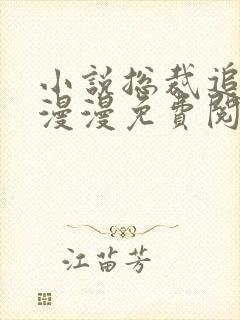 小说总裁追
漫漫免费阅
江苗芳